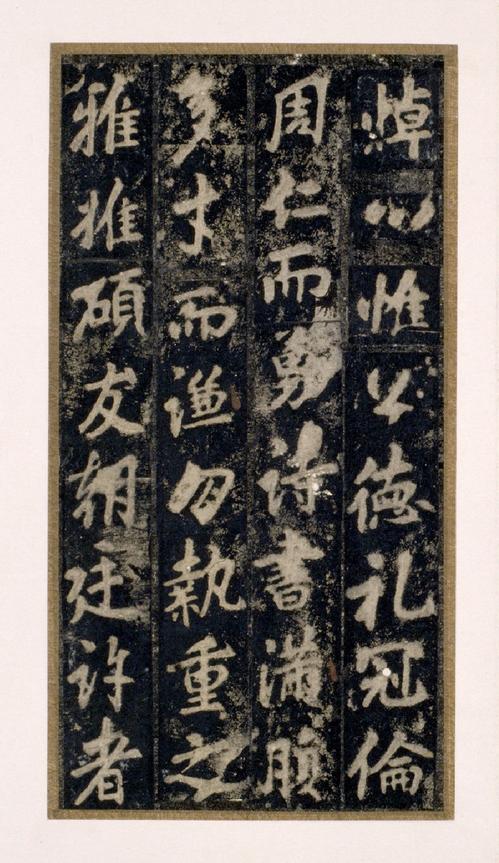 悼心惟公德礼冠倫
周仁而勇詩書滿腹
多才而勿執重之
雅推碩友朝廷許者